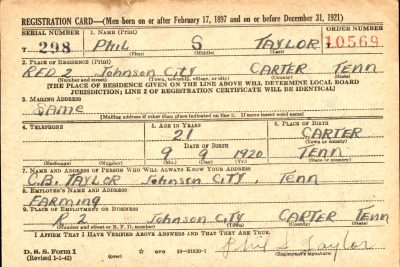 REGISTRATION CARD—(Men born on or after February 17, 1897 and on or before December 31, 1921)
SERIAL NUMBER 1. NAME (Print) ORDER NUMBER
T 298 Phil S TAYLOR 10569
(First) (Middle) (Last)
2. PLACE OF RESIDENCE (Print)
RFD 2 Johnson City CARTER Tenn
(Number and street) (Town, township, village, or city) (County) (State)
[THE PLACE OF RESIDENCE GIVEN ON THE LINE ABOVE WILL DETERMINE LOCAL BOARD
JURISDICTION; LINE 2 OF REGISTRATION CERTIFICATE WILL BE IDENTICAL]
3. MAILING ADDRESS
SAME
[Mailing address if other than place indicated on line 2. If same insert word same]
4. TELEPHONE 5. AGE IN YEARS 6. PLACE OF BIRTH
21 CARTER
DATE OF BIRTH (Town or county)
9 9 1920 TENN
(Exchange) (Number) (Mo.) (Day) (Yr.) (State or country)
7. NAME AND ADDRESS OF PERSON WHO WILL ALWAYS KNOW YOUR ADDRESS
C.B. TAYLOR Johnson CITY, Tenn
8. EMPLOYER'S NAME AND ADDRESS
FARMING
9. PLACE OF EMPLOYMENT OR BUSINESS
R 2 Johnson City CARTER Tenn
(Number and street or R. F. D. number) (Town) (County) (State)
I AFFIRM THAT I HAVE VERIFIED ABOVE ANSWERS AND THAT THEY ARE TRUE.
D. S. S. Form 1 Phil S Taylor
(Revised 1-1-42) (over) GPO 16—21630-1 (Registrant's signature)